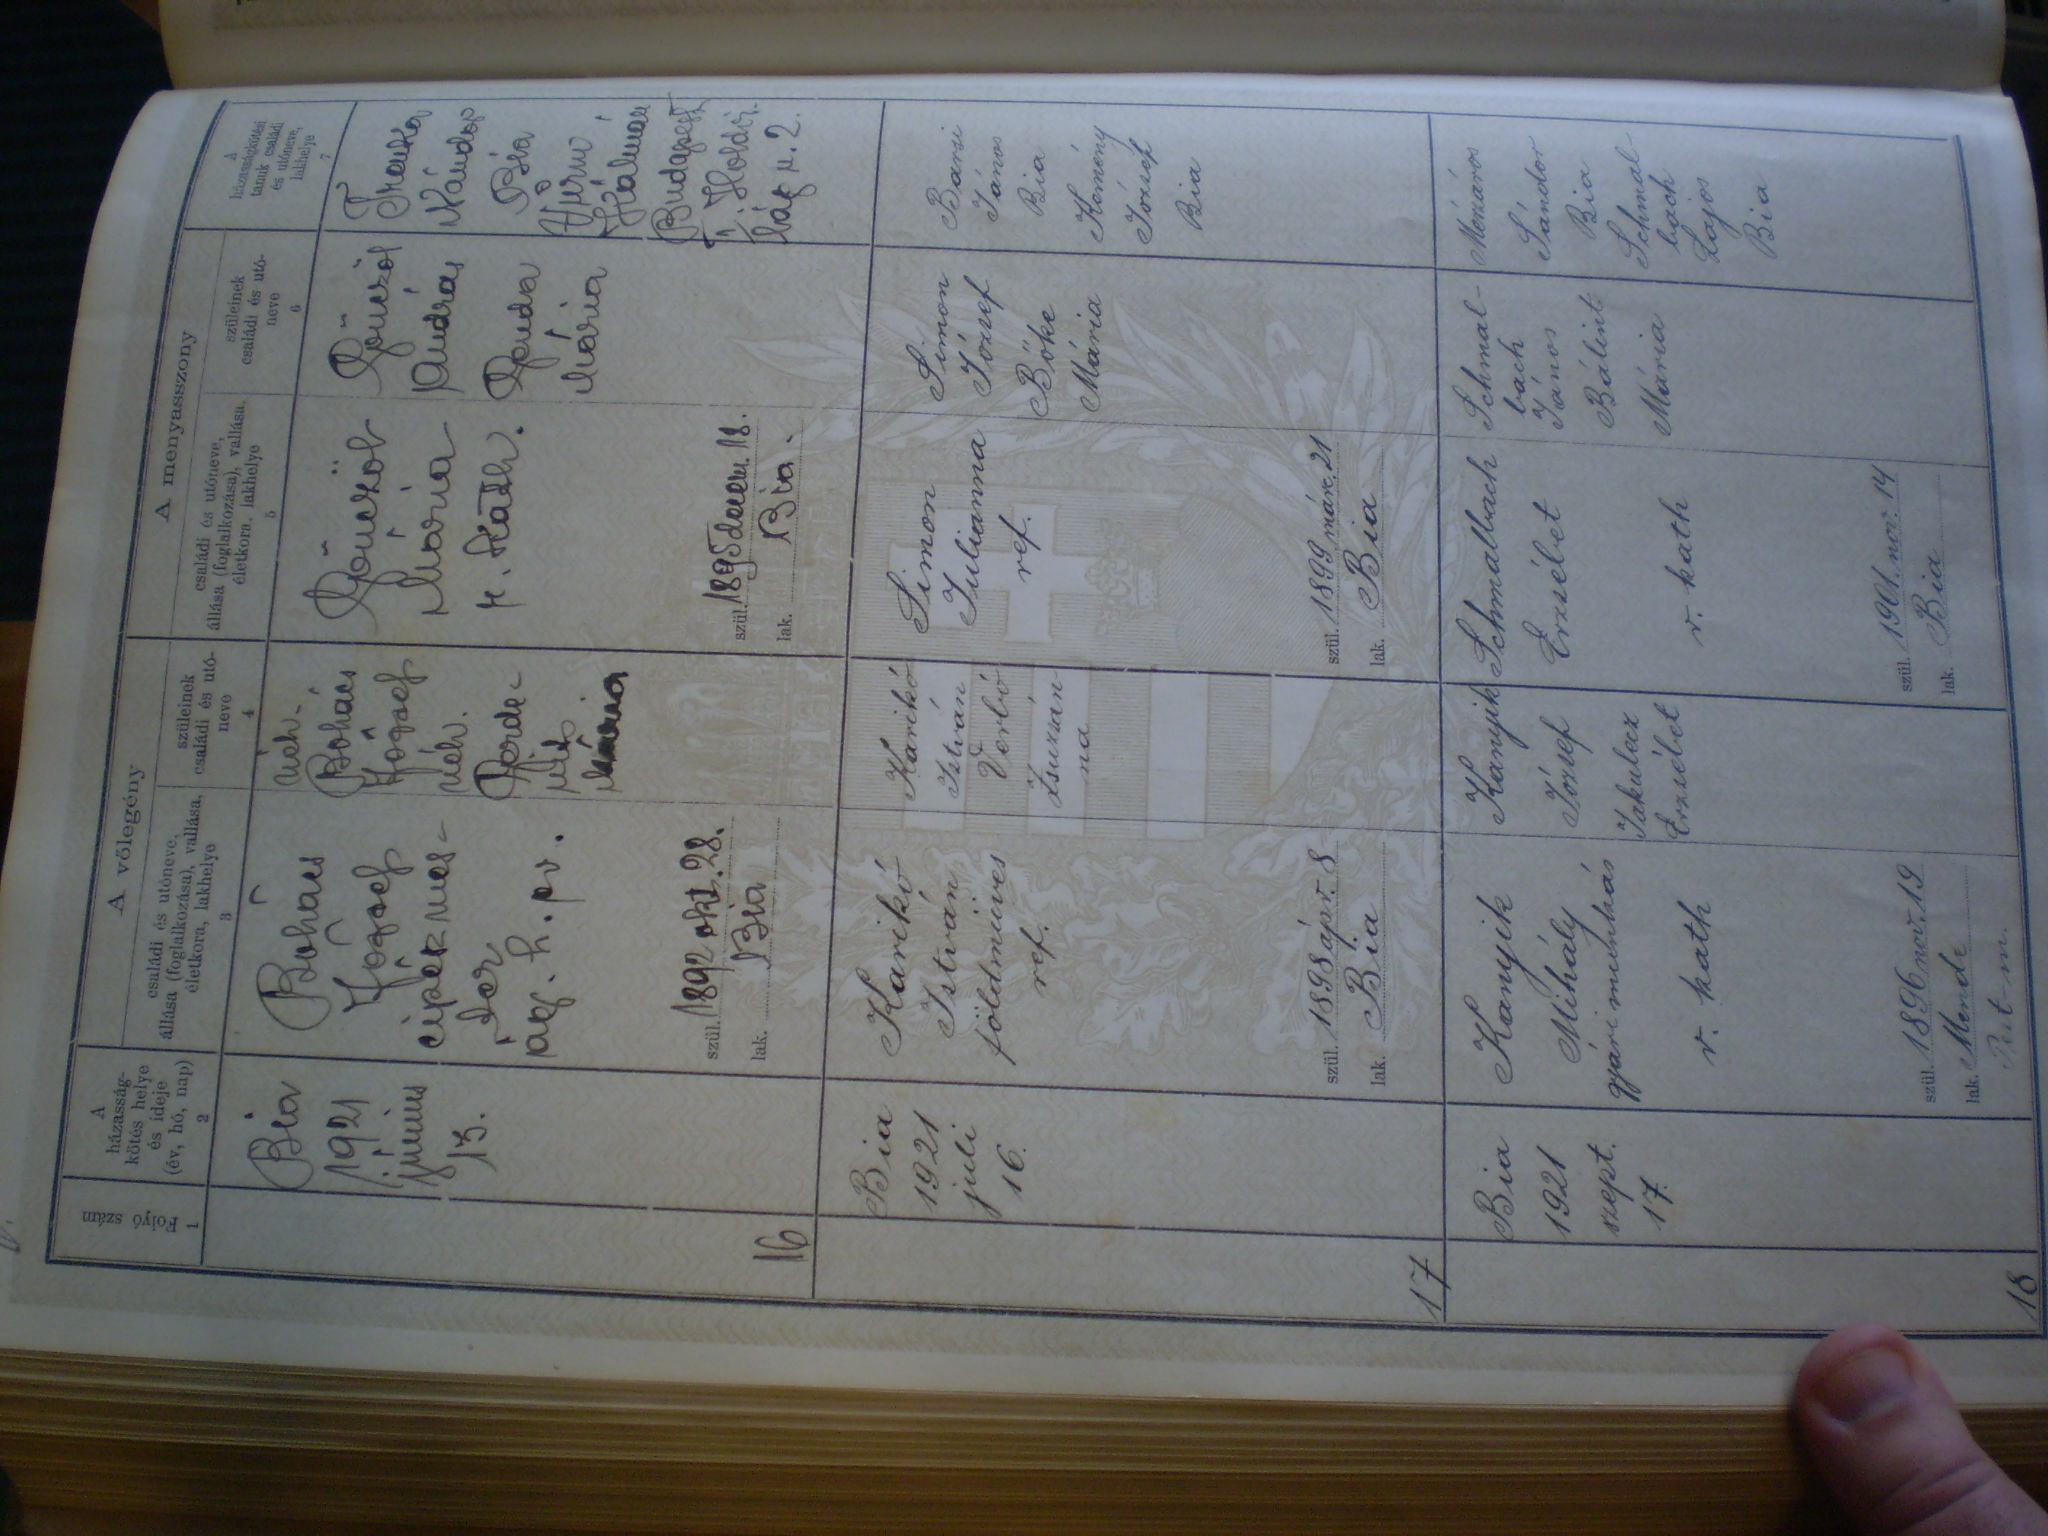 1
Folyó szám
A
házasság-
kötés helye
és ideje
(év, hó, nap)
2
A vőlegény
családi és utóneve,
állása (foglalkozása), vallása,
életkora, lakhelye
3
szüleinek
családi és utó-
neve
4
A menyasszony
családi és utóneve,
állása (foglalkozása), vallása,
életkora, lakhelye
5
szüleinek
családi és utó-
neve
6
A
házasságkötési
tanuk családi
és utóneve,
lakhelye
7
16
Bia
1921
június
13.
Bohács
József
cipészmes-
ter
ág. h. ev.
szül. 1892 okt. 28.
lak. Bia
néh.
Bohács
József
néh.
Mária
Gönczöl
Mária
r. kath.
szül. 1895 decem. 18.
lak. Bia.
Gönczöl
András
Mária
Nándor
Bia
Kálmán
Budapest
Hold
u. 2.
17
Bia
1921
juli
16.
Karikó
István
földműves
ref.
szül. 1898 ápr. 8
lak. Bia
Karikó
István
Verbó
Zsuzsán-
na
Simon
Julianna
ref.
szül. 1899 márc. 21
lak. Bia
Simon
József
Bőke
Mária
Barsi
János
Bia
Kemény
József
Bia
18
Bia
1921
szept.
17.
Kanyik
Mihály
gyári munkás
r. kath
szül. 1896 nov. 19
lak. Mende
Pest-m.
Kanyik
József
Jakulecz
Erzsébet
Schmalbach
Erzsébet
r. kath
szül. 1901. nov. 14
lak. Bia
Schmal-
bach
János
Bálint
Mária
Mészáros
Sándor
Bia
Schmal-
bach
Lajos
Bia